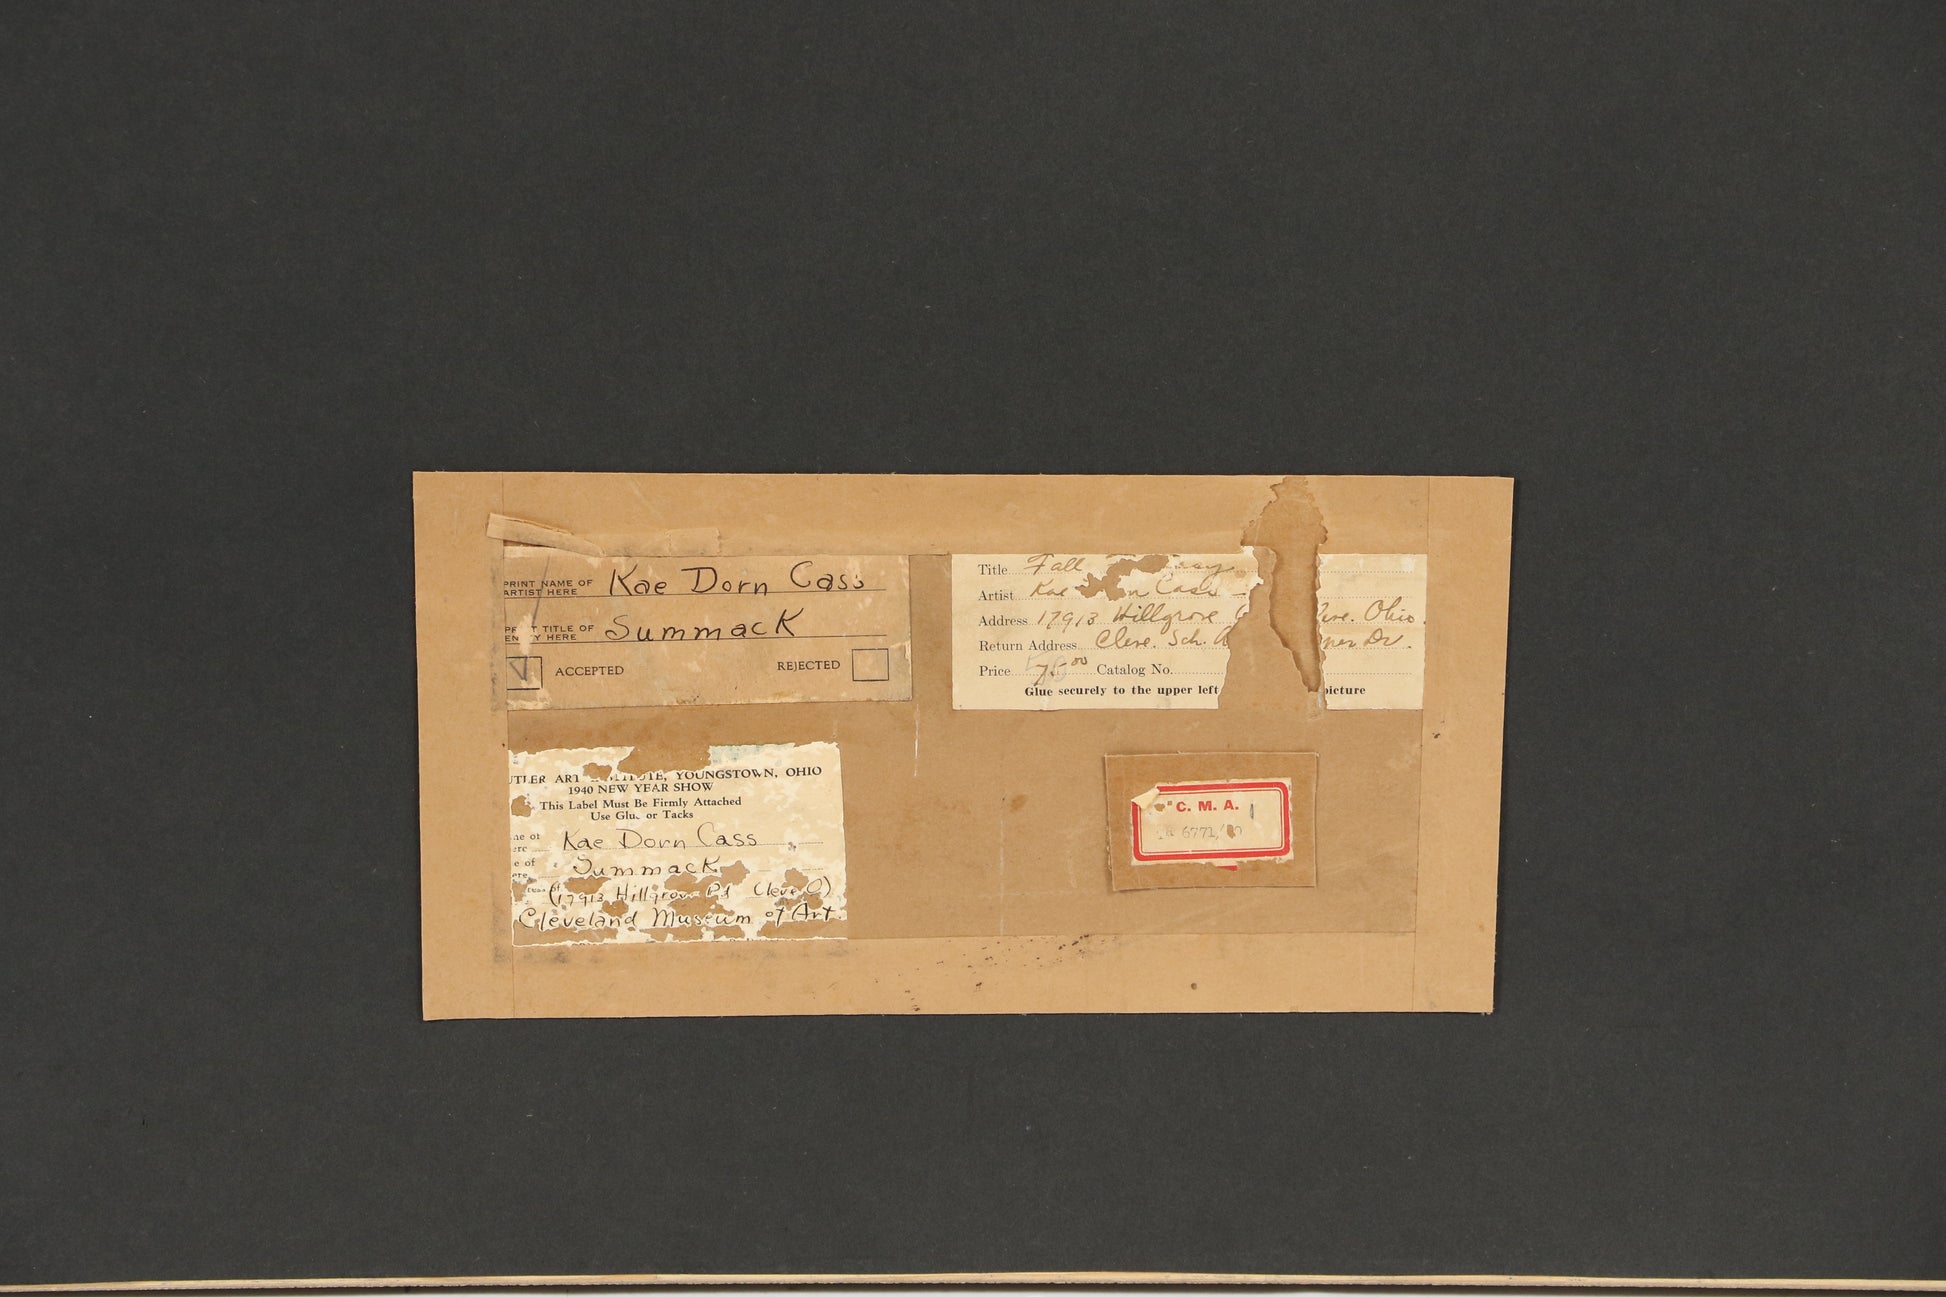 PRINT NAME OF
ARTIST HERE Kae Dorn Cass
TITLE OF
HERE Summack
ACCEPTED REJECTED
Title Fall
Artist Kae Cass
Address 17913 Hillgrove Ohio.
Return Address Cleve. Sch. Dr.
Price Catalog No.
Glue securely to the upper left picture
UTLER ART INSTITUTE, YOUNGSTOWN, OHIO
1940 NEW YEAR SHOW
This Label Must Be Firmly Attached
Use Glue or Tacks
Kae Dorn Cass
Summack
(17913 Hillgrove Rd Cleve O)
Cleveland Museum of Art
C. M. A.
6771